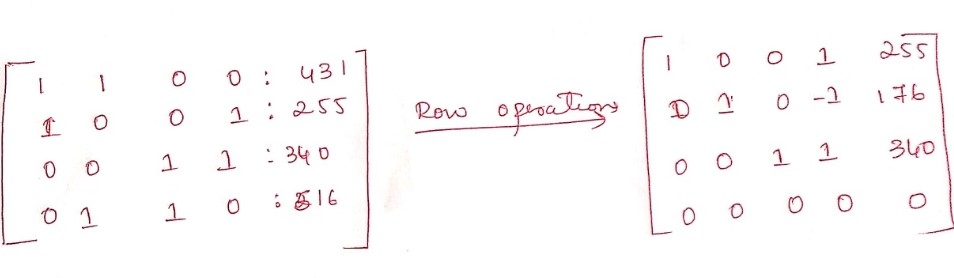 1 1 0 0 : 431
1 0 0 1 : 255
0 0 1 1 : 340
0 1 1 0 : 516
Row operations
1 0 0 1 255
0 1 0 -1 176
0 0 1 1 340
0 0 0 0 0